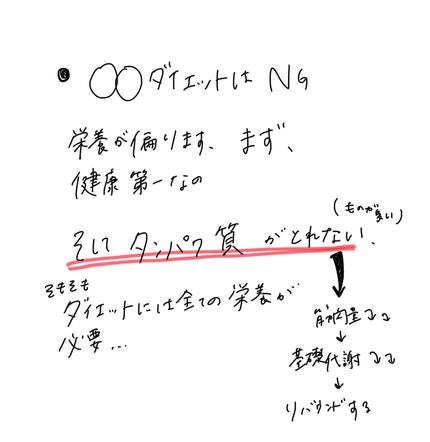 • ○○ダイエットは NG
栄養が偏ります、まず、
健康第一なの
(ものが多い)
そして タンパク質 がとれない、
そもそも
ダイエットには全ての栄養が
必要...
筋肉量↓↓
↓
基礎代謝↓↓
↓
リバウンドする